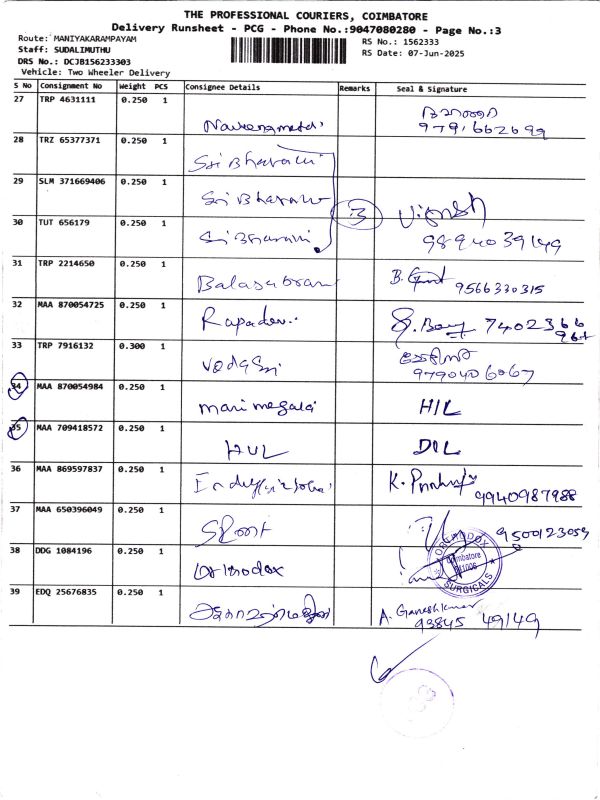 THE PROFESSIONAL COURIERS, COIMBATORE
Delivery Runsheet - PCG - Phone No.:9047080280 - Page No.:3
Route: MANIYAKARAMPAYAM
RS No.: 1562333
Staff: SUDALIMUTHU
RS Date: 07-Jun-2025
DRS No.: DCJB156233303
Vehicle: Two Wheeler Delivery
S No Consignment No Weight PCS Consignee Details Remarks Seal & Signature
27 TRP 4631111 0.250 1
9791662699
28 TRZ 65377371 0.250 1 Sri Bharani
29 SLM 371669406 0.250 1 Sri Bharani 3 Vignesh
30 TUT 656179 0.250 1 Sri Bharani 9894039149
31 TRP 2214650 0.250 1 Balasubram 9566330315
32 MAA 870054725 0.250 1 Rapadevi 7402366
33 TRP 7916132 0.300 1 Vodasri
9790406067
34 MAA 870054984 0.250 1 Mari megalai HIL
35 MAA 709418572 0.250 1 HUL DIL
36 MAA 869597837 0.250 1 K. 9940987988
37 MAA 650396049 0.250 1 9500123059
38 DDG 1084196 0.250 1 Orthodox
ORTHODOX
Coimbatore
SURGICALS
39 EDQ 25676835 0.250 1 A. Ganeshkumar
93845 49149